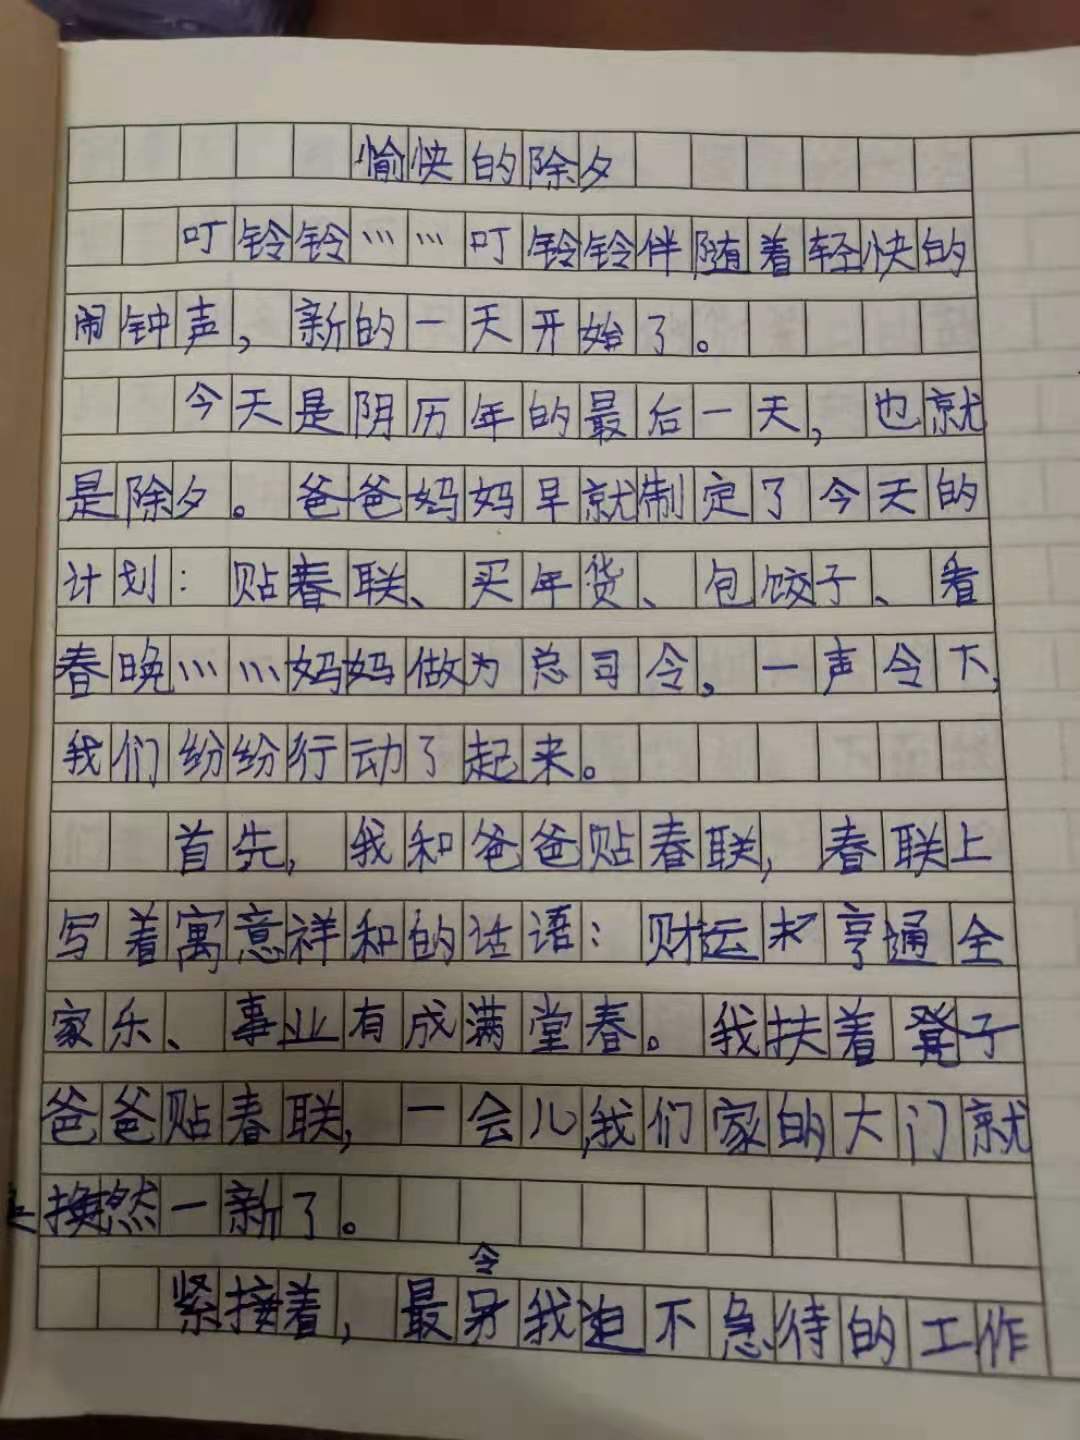 愉快的除夕
叮铃铃……叮铃铃伴随着轻快的
闹钟声，新的一天开始了。
今天是阴历年的最后一天，也就
是除夕。爸爸妈妈早就制定了今天的
计划：贴春联、买年货、包饺子、看
春晚……妈妈做为总司令。一声令下，
我们纷纷行动了起来。
首先，我和爸爸贴春联，春联上
写着寓意祥和的话语：财运亨通全
家乐、事业有成满堂春。我扶着凳子
爸爸贴春联，一会儿，我们家的大门就
换然一新了。
令
紧接着，最另我迫不急待的工作